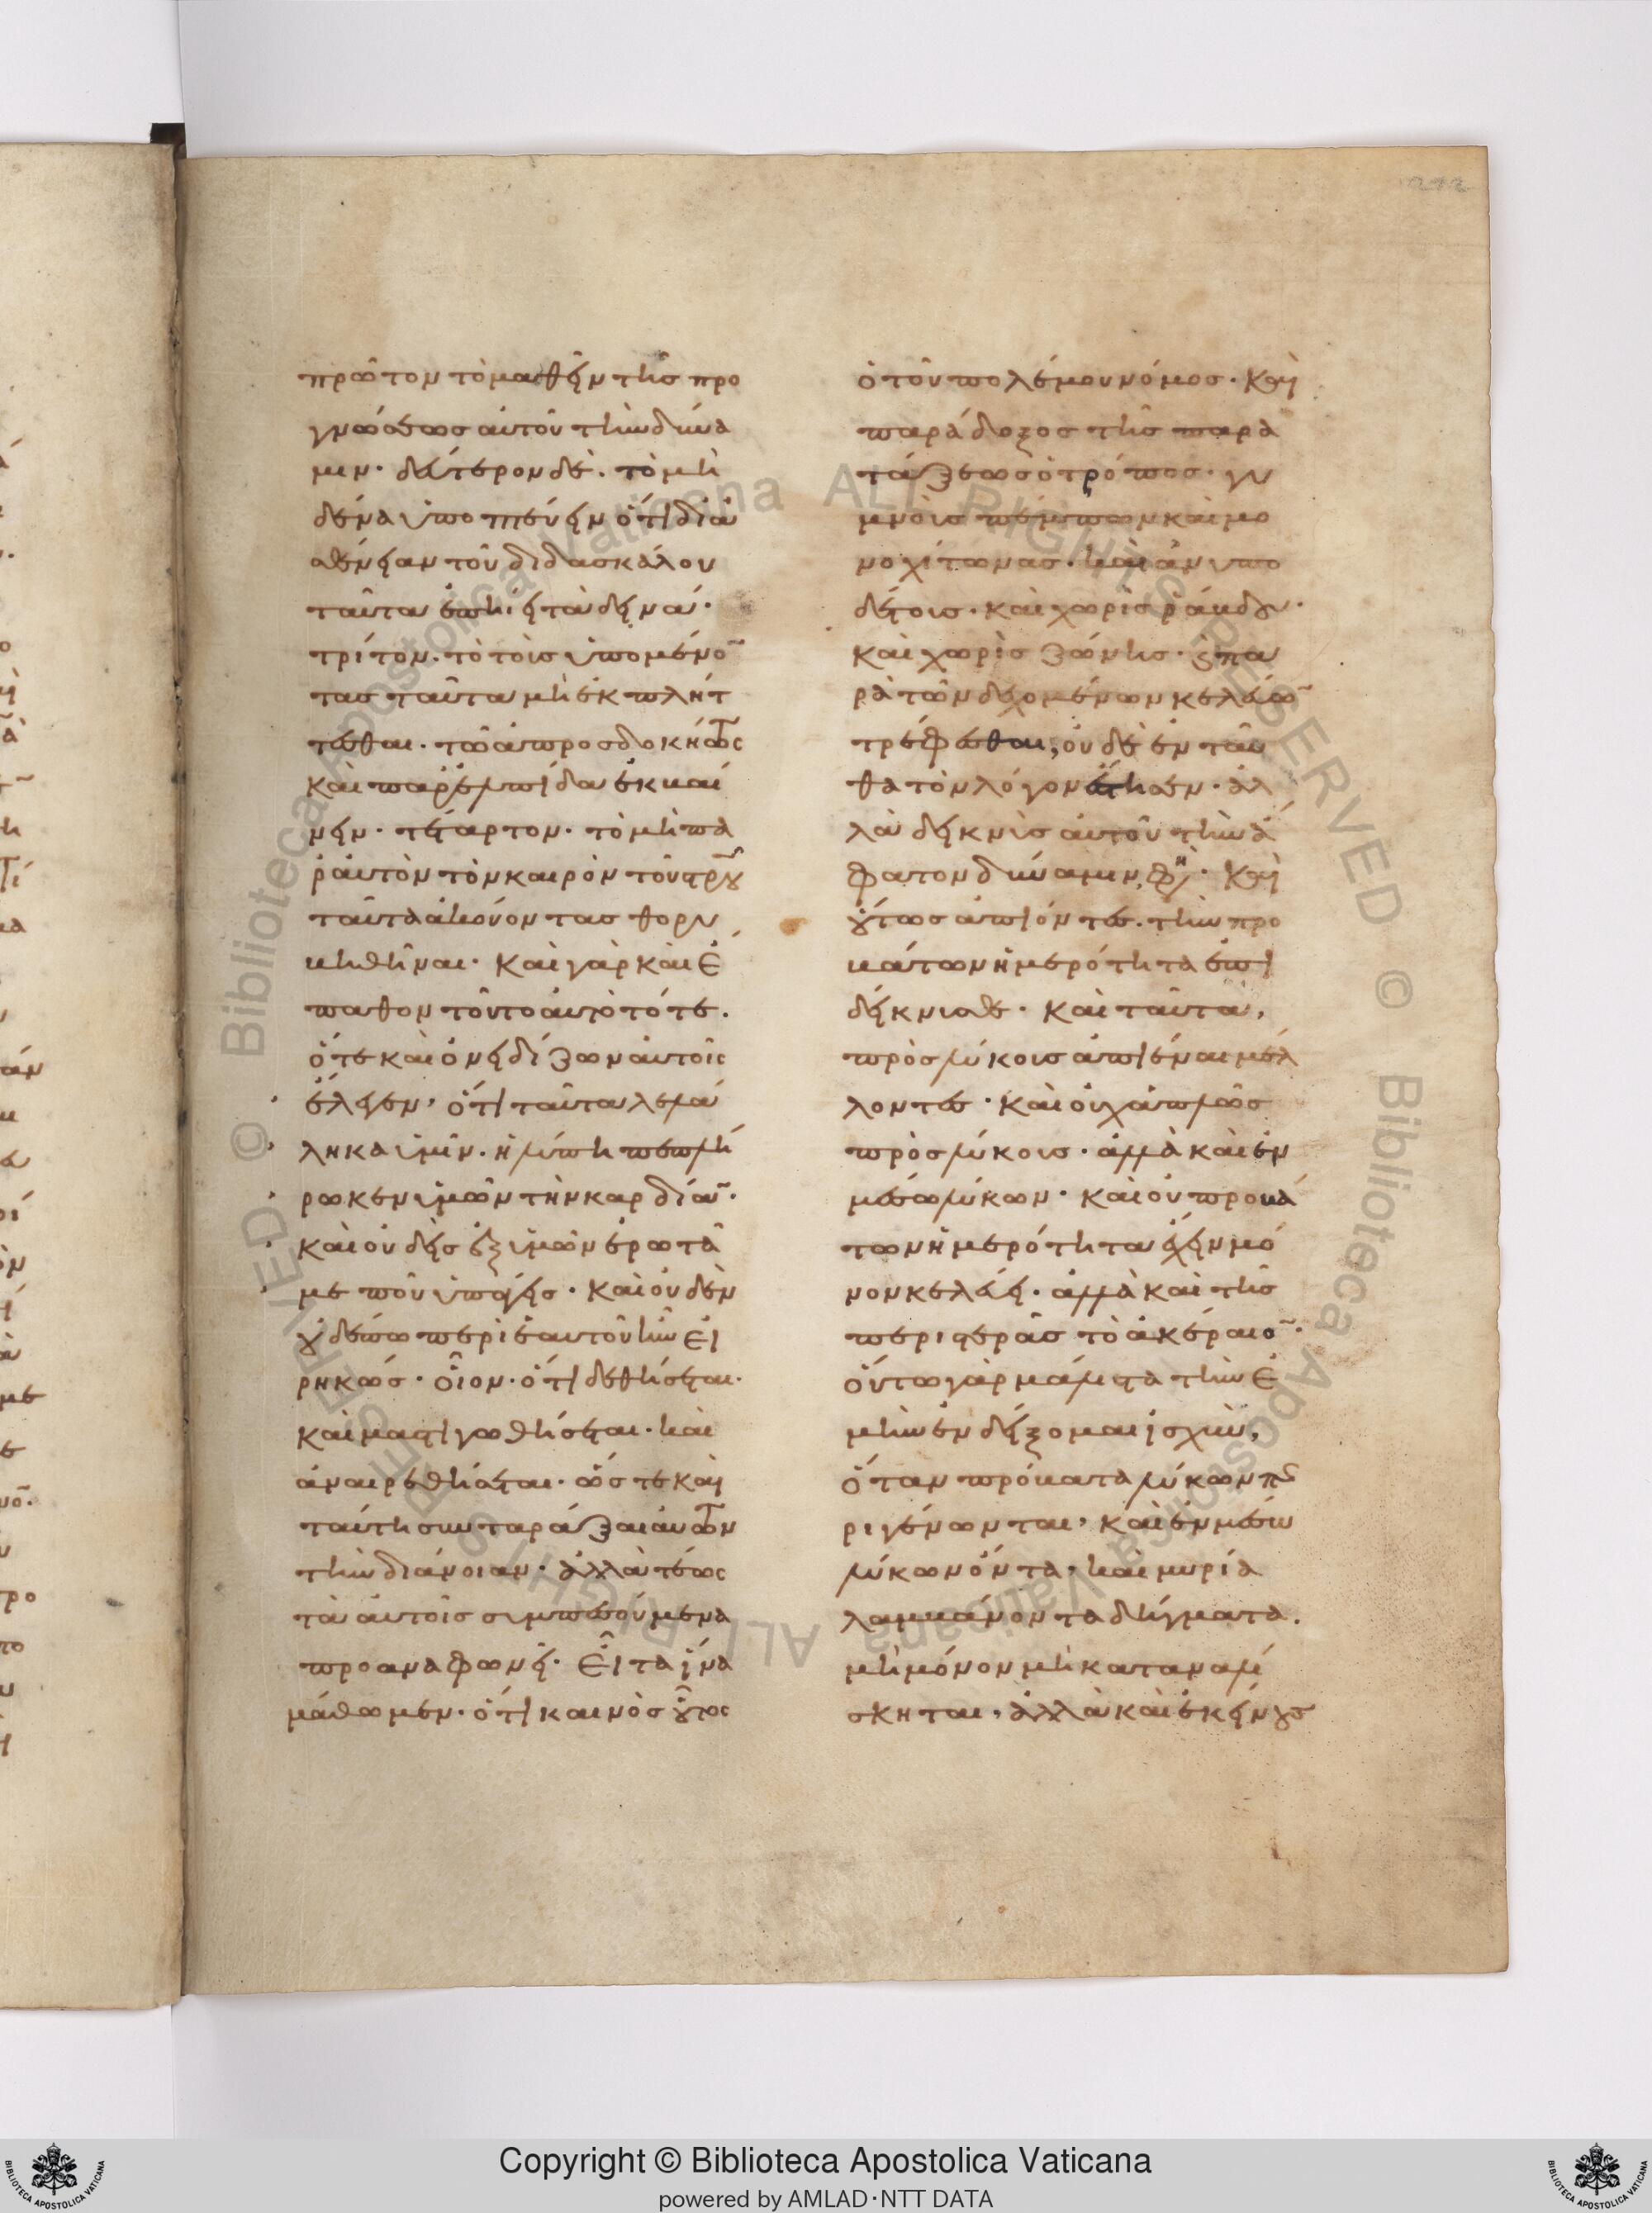 πρῶτον τὸ μαθεῖν τῆς προ
γνώσεως αὐτοῦ τὴν δύνα
μιν· δεύτερον δὲ. τὸ μὴ
δένα ὑποπτεύειν ὅτι δι ἀ
σθένειαν τοῦ διδασκάλου
ταῦτα ἐπῄει τὰ δεινά·
τρίτον. τὸ τοὺς ὑπομένο
τας ταῦτα μὴ ἐκπλήτ
τεσθαι. τῶ ἀπροσδοκήτως
καὶ παρ ἐλπίδα ἐκβαί
νειν· τέταρτον. τὸ μὴ πα
ρ αὐτὸν τὸν καιρὸν τοῦ στρου
ταῦτα ἀκούοντας θορυ
βηθῆναι· καὶ γὰρ καὶ ἔ
παθον τοῦτο αὐτὸ τότε.
ὅτε καὶ ὀνειδίζων αὐτοῖς
ἔλεγεν, ὅτι ταῦτα λελά
ληκα ὑμῖν. ἡ λύπη πεπλή
ρωκεν ὑμῶν τὴν καρδίαν·
καὶ οὐδεὶς ἐξ ὑμῶν ἐρωτᾶ
με ποῦ ὑπάγεις· καὶ οὐδὲν
οὐδέπω περὶ ἑαυτοῦ ἦν εἰ
ρηκώς· οἷον· ὅτι δεθήσεται·
καὶ μαστιγωθήσεται· καὶ
ἀναιρεθήσεται· ὥστε καὶ
ταύτη συνταράξαι αὐτῶν
τὴν διάνοιαν· ἀλλὰ τέως
τὰ αὐτοῖς συμπεσούμενα
προαναφωνεῖ· εἶτα ἵνα
μάθωμεν· ὅτι καινὸς οὗτος
ὁ τοῦ πολέμου νόμος· καὶ
παράδοξος τῆς παρα
τάξεως ὁ τρόπος· γυ
μνοὺς πέμπων καὶ μο
νοχίτωνας· καὶ ἀνυπο
δέτους· καὶ χωρὶς ῥάβδου·
καὶ χωρὶς ζώνης· καὶ πα
ρὰ τῶν δεχομένων κελεύων
τρέφεσθαι, οὐδὲ ἐνταῦ
θα τὸν λόγον ἔστησεν· ἀλ
λὰ δεικνὺς αὐτοῦ τὴν ἄ
φατον δύναμιν, φησὶ· καὶ
οὕτως ἀπιόντες. τὴν προ
βάτων ἡμερότητα ἐπι
δείκνυσθε· καὶ ταῦτα,
πρὸς λύκους ἀπιέναι μέλ
λοντες· καὶ οὐχ ἁπλῶς
πρὸς λύκους· ἀλλὰ καὶ ἐν
μέσω λύκων· καὶ οὐ προβά
των ἡμερότητα ἔχειν μό
νον κελεύει· ἀλλὰ καὶ τῆς
περιστερᾶς τὸ ἀκέραιον·
οὕτω γὰρ μάλιστα τὴν ἐ
μὴν ἐνδείξομαι ἰσχὺν,
ὅταν πρόβατα λύκων πε
ριγένωνται, καὶ ἐν μέσω
λύκων ὄντα, καὶ μυρία
λαμβάνοντα δήγματα.
μὴ μόνον μὴ καταναλί
σκηται, ἀλλὰ καὶ ἐκείνους
Copyright © Biblioteca Apostolica Vaticana
powered by AMLAD·NTT DATA